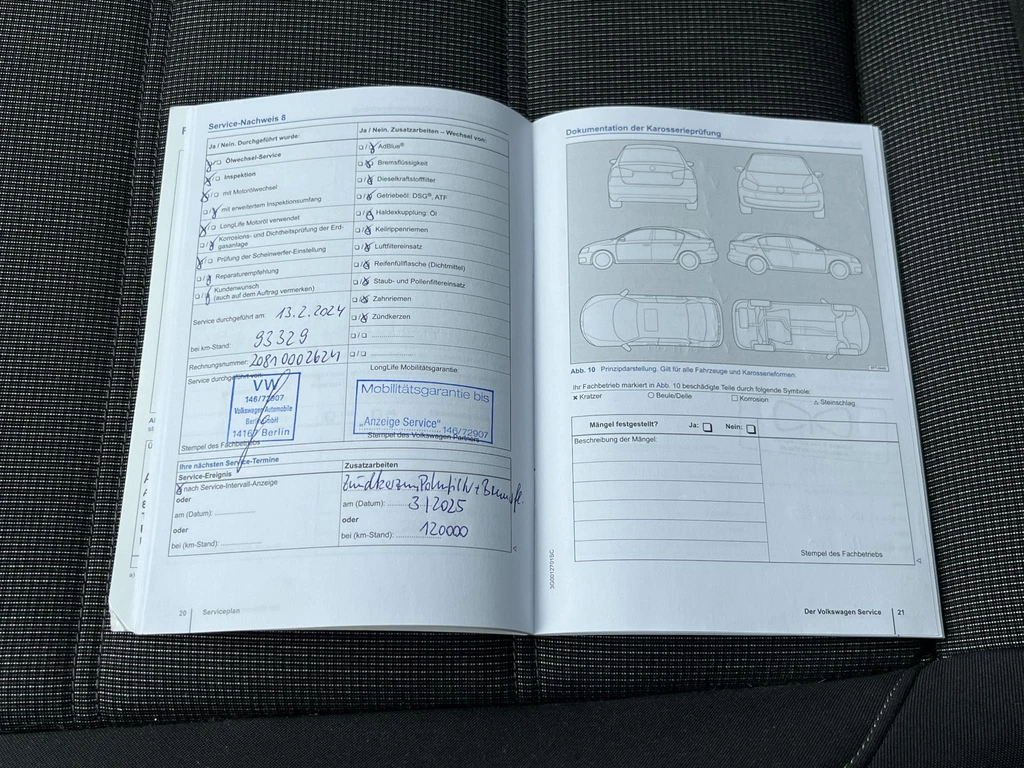 Service-Nachweis 8
Ja / Nein. Durchgeführt wurde:
Ölwechsel-Service
Inspektion
mit Motorölwechsel
mit erweitertem Inspektionsumfang
LongLife Motoröl verwendet
Korrosions- und Dichtheitsprüfung der Erd-
gasanlage
Prüfung der Scheinwerfer-Einstellung
Reparaturempfehlung
Kundenwunsch
(auch auf dem Auftrag vermerken)
Service durchgeführt am: 13.2.2024
bei km-Stand: 93329
Rechnungsnummer: 20810002624
Service durchgeführt von:
VW
146/72907
Volkswagen Automobile
Berlin GmbH
Berlin
Stempel des Fachbetriebs
Ja / Nein. Zusatzarbeiten – Wechsel von:
AdBlue®
Bremsflüssigkeit
Dieselkraftstofffilter
Getriebeöl: DSG®, ATF
Haldexkupplung: Öl
Keilrippenriemen
Luftfiltereinsatz
Reifenfüllflasche (Dichtmittel)
Staub- und Pollenfiltereinsatz
Zahnriemen
Zündkerzen
LongLife Mobilitätsgarantie
Mobilitätsgarantie bis
„Anzeige Service“
146/72907
Stempel des Volkswagen Partners
Ihre nächsten Service-Termine
Service-Ereignis
nach Service-Intervall-Anzeige
oder
am (Datum):
oder
bei (km-Stand):
Zusatzarbeiten
am (Datum): 3/2025
oder
bei (km-Stand): 120000
20 Serviceplan
Dokumentation der Karosserieprüfung
Abb. 10 Prinzipdarstellung. Gilt für alle Fahrzeuge und Karosserieformen.
Ihr Fachbetrieb markiert in Abb. 10 beschädigte Teile durch folgende Symbole:
x Kratzer ○ Beule/Delle □ Korrosion △ Steinschlag
Mängel festgestellt? Ja: Nein:
Beschreibung der Mängel:
Stempel des Fachbetriebs
3G0012701SC
Der Volkswagen Service 21